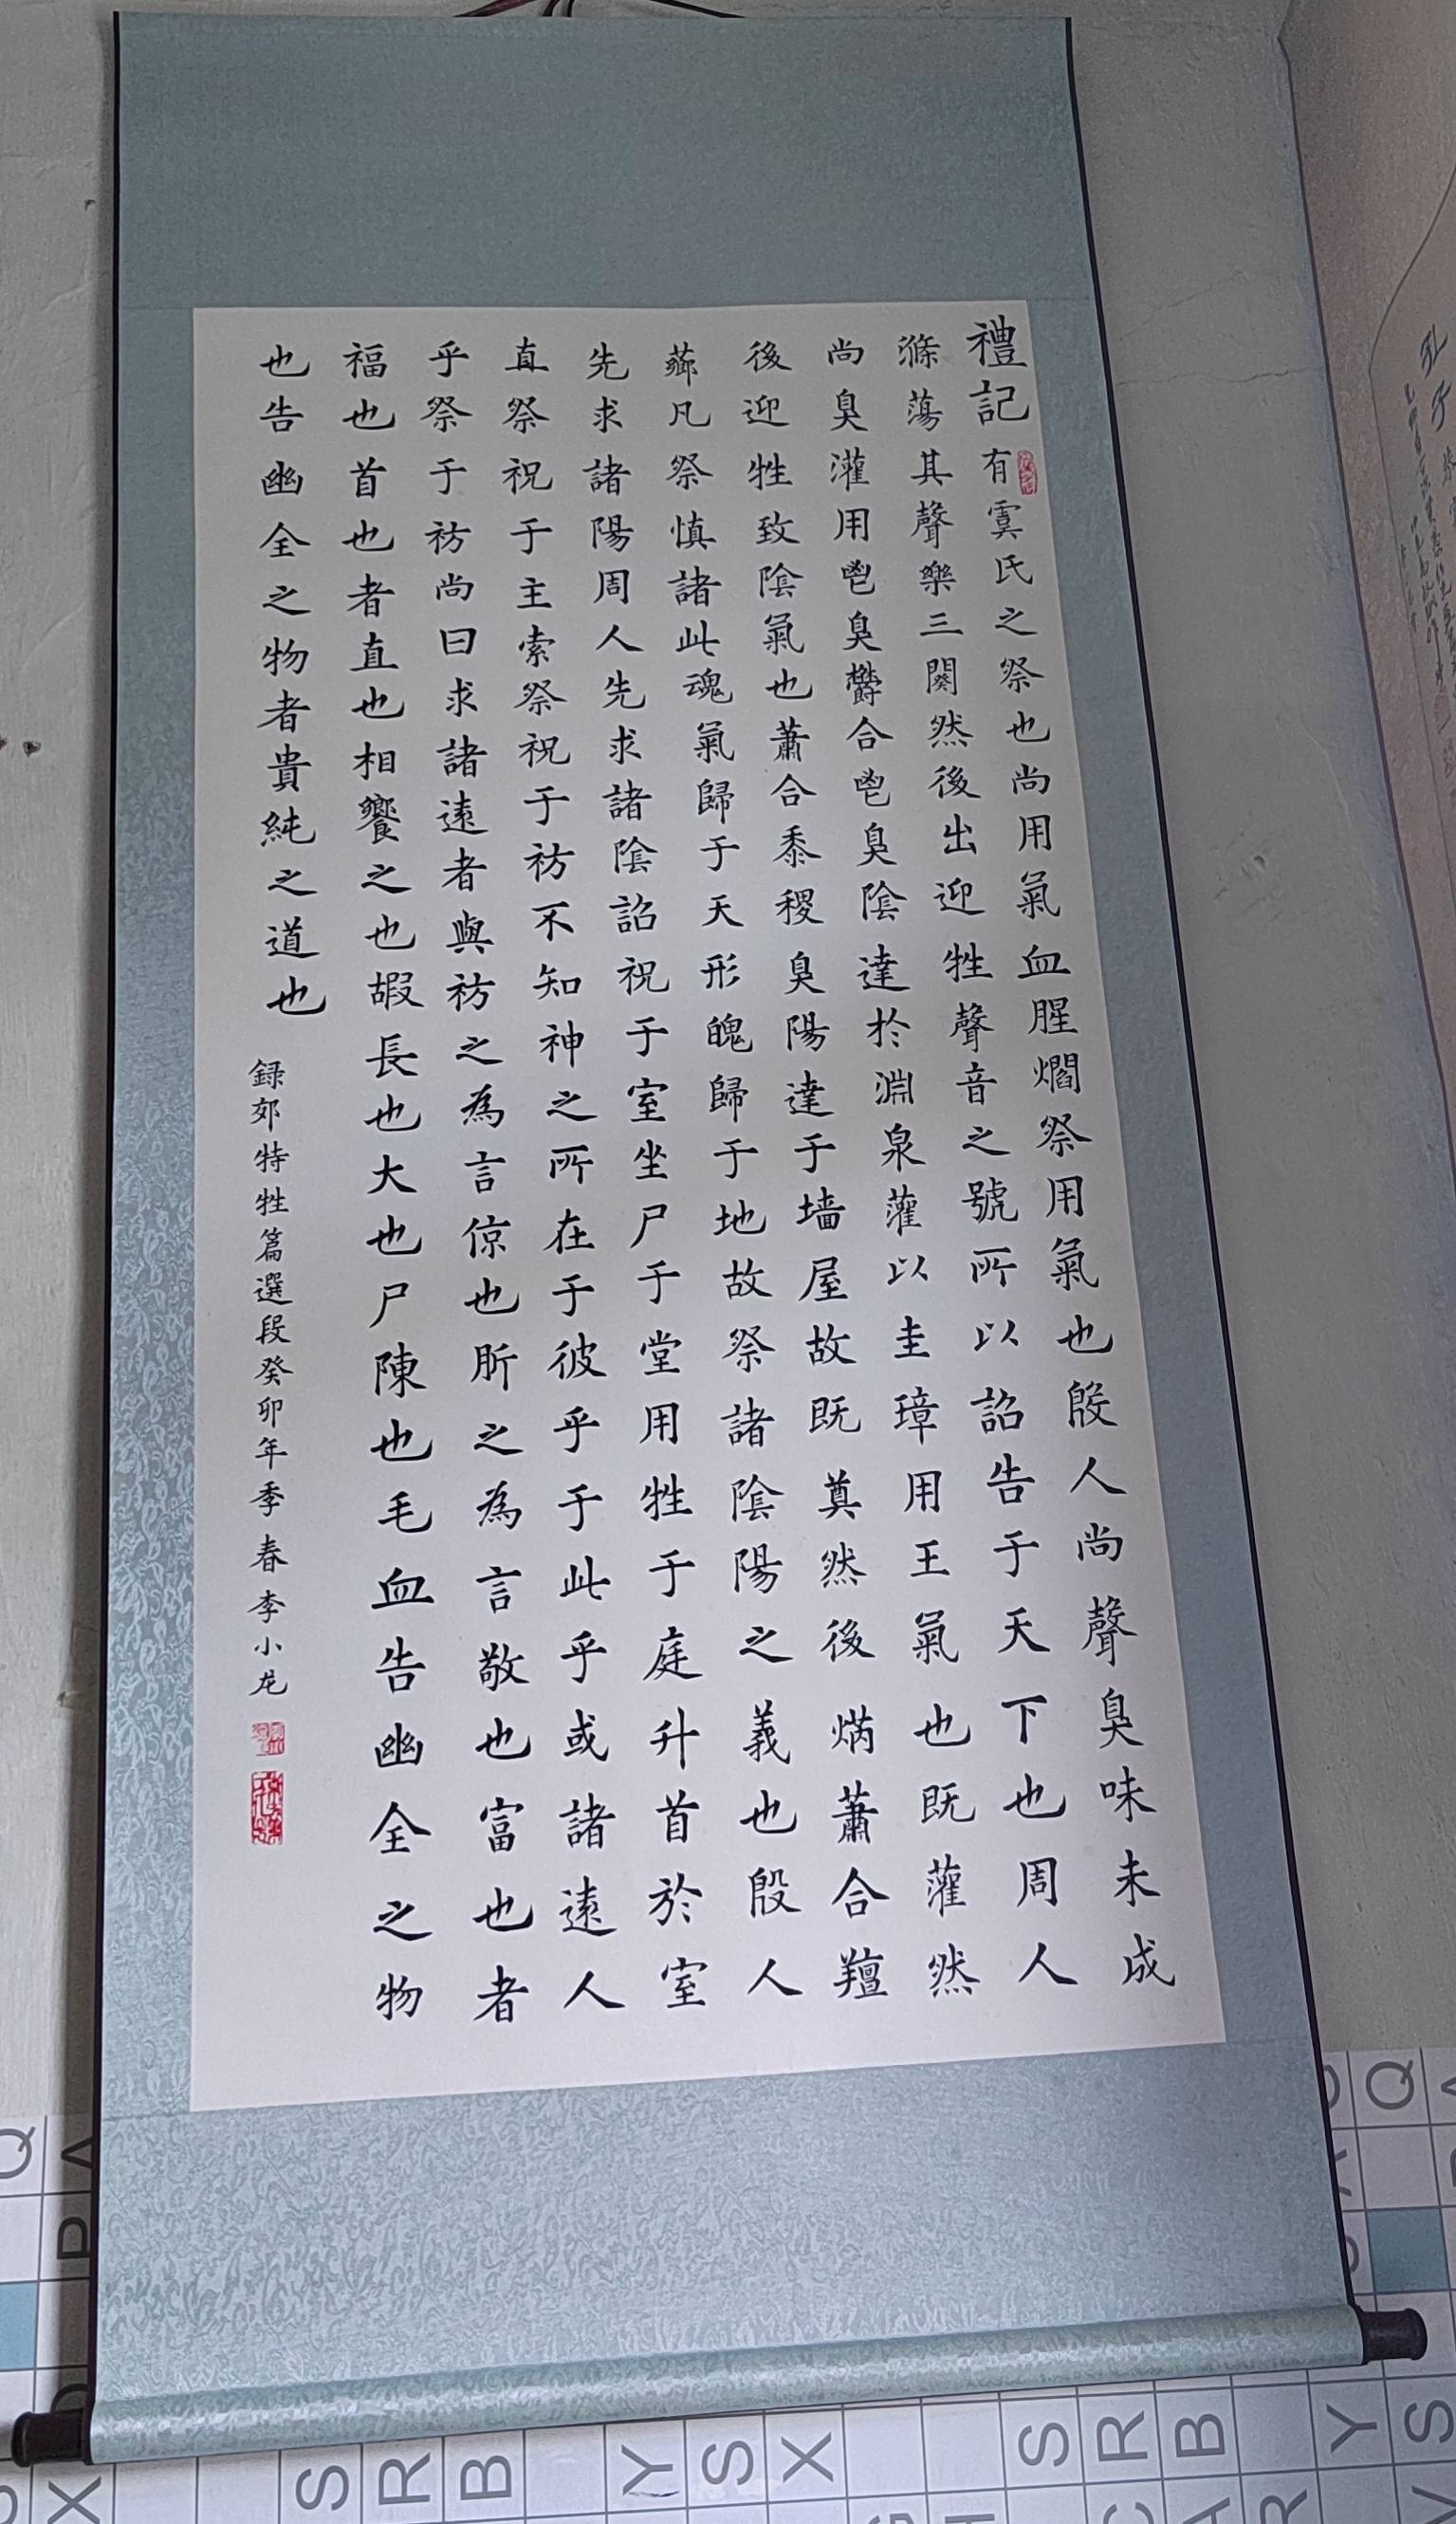 禮記有虞氏之祭也尚用氣血腥爓祭用氣也殷人尚聲臭味未成
滌蕩其聲樂三闋然後出迎牲聲音之號所以詔告于天下也周人
尚臭灌用鬯臭鬱合鬯臭陰達於淵泉灌以圭璋用玉氣也既灌然
後迎牲致陰氣也蕭合黍稷臭陽達于墙屋故既奠然後焫蕭合羶
薌凡祭慎諸此魂氣歸于天形魄歸于地故祭諸陰陽之義也殷人
先求諸陽周人先求諸陰詔祝于室坐尸于堂用牲于庭升首於室
直祭祝于主索祭祝于祊不知神之所在于彼乎于此乎或諸遠人
乎祭于祊尚曰求諸遠者與祊之為言倞也肵之為言敬也富也者
福也首也者直也相饗之也嘏長也大也尸陳也毛血告幽全之物
也告幽全之物者貴純之道也
録郊特牲篇選段癸卯年季春李小龙
S R B Y S X S R B Y S